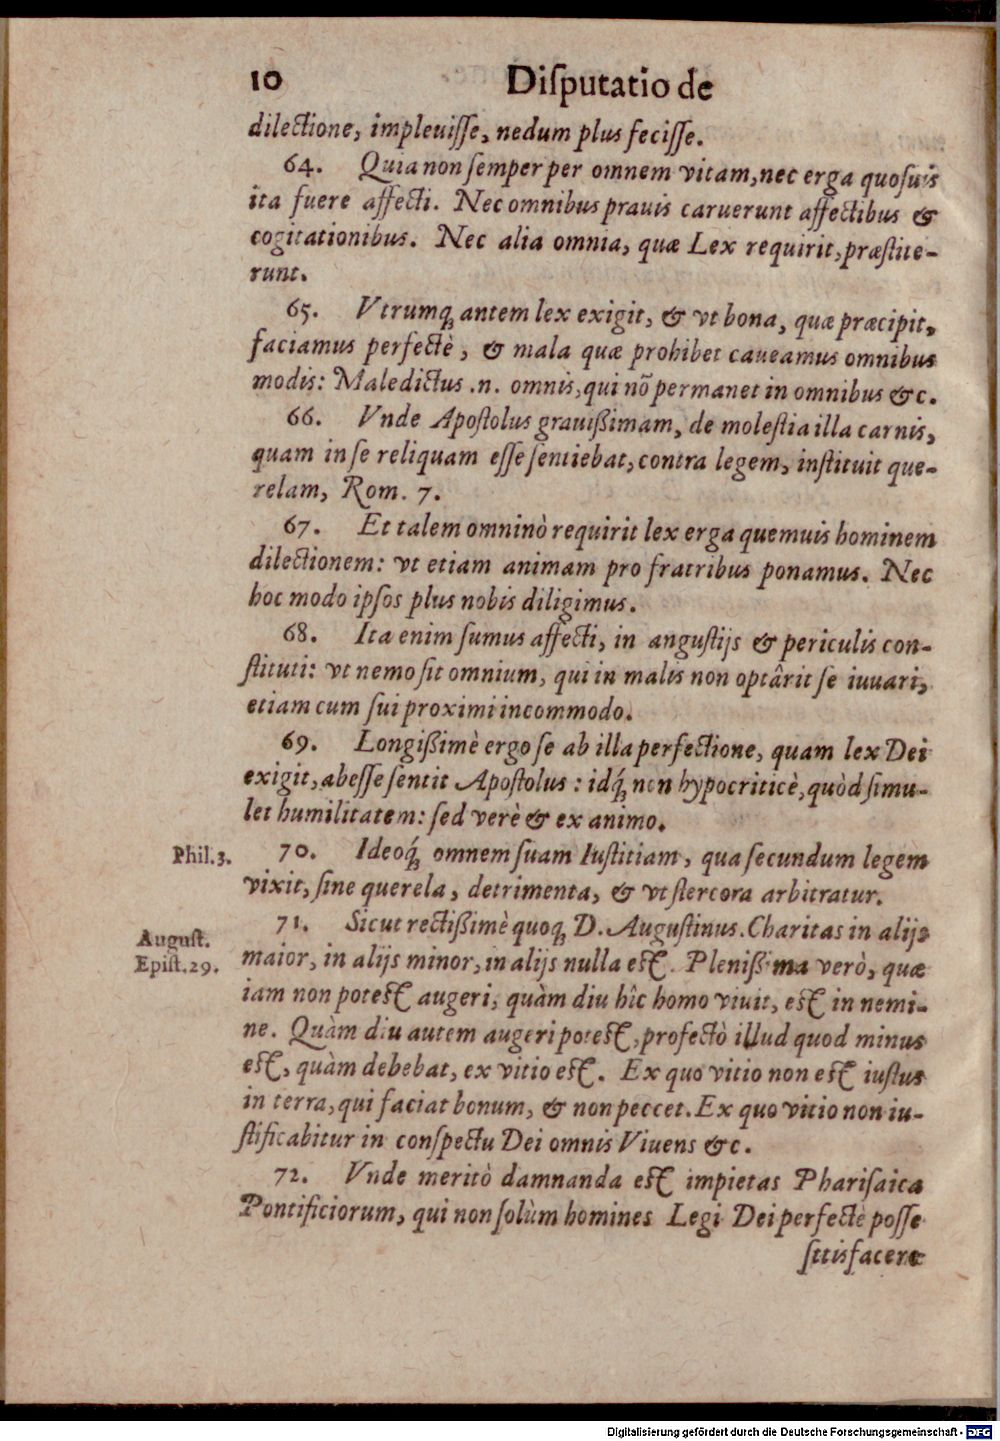 10 Diſputatio de
dilectione, impleuiſſe, nedum plus feciſſe.
64. Quia non ſemper per omnem vitam, nec erga quoſuis
ita fuere affecti. Nec omnibus prauis caruerunt affectibus &
cogitationibus. Nec alia omnia, quæ Lex requirit, præſtite-
runt.
65. Vtrumq́; antem lex exigit, & vt bona, quæ præcipit,
faciamus perfectè, & mala quæ prohibet caueamus omnibus
modis: Maledictus .n. omnis, qui nõ permanet in omnibus &c.
66. Vnde Apoſtolus grauißimam, de moleſtia illa carnis,
quam in ſe reliquam eſſe ſentiebat, contra legem, inſtituit que-
relam, Rom. 7.
67. Et talem omninò requirit lex erga quemuis hominem
dilectionem: vt etiam animam pro fratribus ponamus. Nec
hoc modo ipſos plus nobis diligimus.
68. Ita enim ſumus affecti, in anguſtijs & periculis con-
ſtituti: vt nemo ſit omnium, qui in malis non optârit ſe iuuari,
etiam cum ſui proximi incommodo.
69. Longißimè ergo ſe ab illa perfectione, quam lex Dei
exigit, abeſſe ſentit Apoſtolus: idq́; non hypocriticè, quòd ſimu-
let humilitatem: ſed verè & ex animo.
Phil. 3. 70. Ideoq́; omnem ſuam Iuſtitiam, qua ſecundum legem
vixit, ſine querela, detrimenta, & vt ſtercora arbitratur.
71. Sicut rectißimè quoq; D. Auguſtinus. Charitas in alijs
Auguſt.
Epiſt. 29.
maior, in alijs minor, in alijs nulla eſt. Plenißima verò, quæ
iam non poteſt augeri, quàm diu hîc homo viuit, eſt in nemi-
ne. Quàm diu autem augeri poteſt, profectò illud quod minus
eſt, quàm debebat, ex vitio eſt. Ex quo vitio non eſt iuſtus
in terra, qui faciat bonum, & non peccet. Ex quo vitio non iu-
ſtificabitur in conſpectu Dei omnis Viuens &c.
72. Vnde meritò damnanda eſt impietas Phariſaica
Pontificiorum, qui non ſolùm homines Legi Dei perfectè poſſe
ſttisfacere
Digitalisierung gefördert durch die Deutsche Forschungsgemeinschaft - DFG